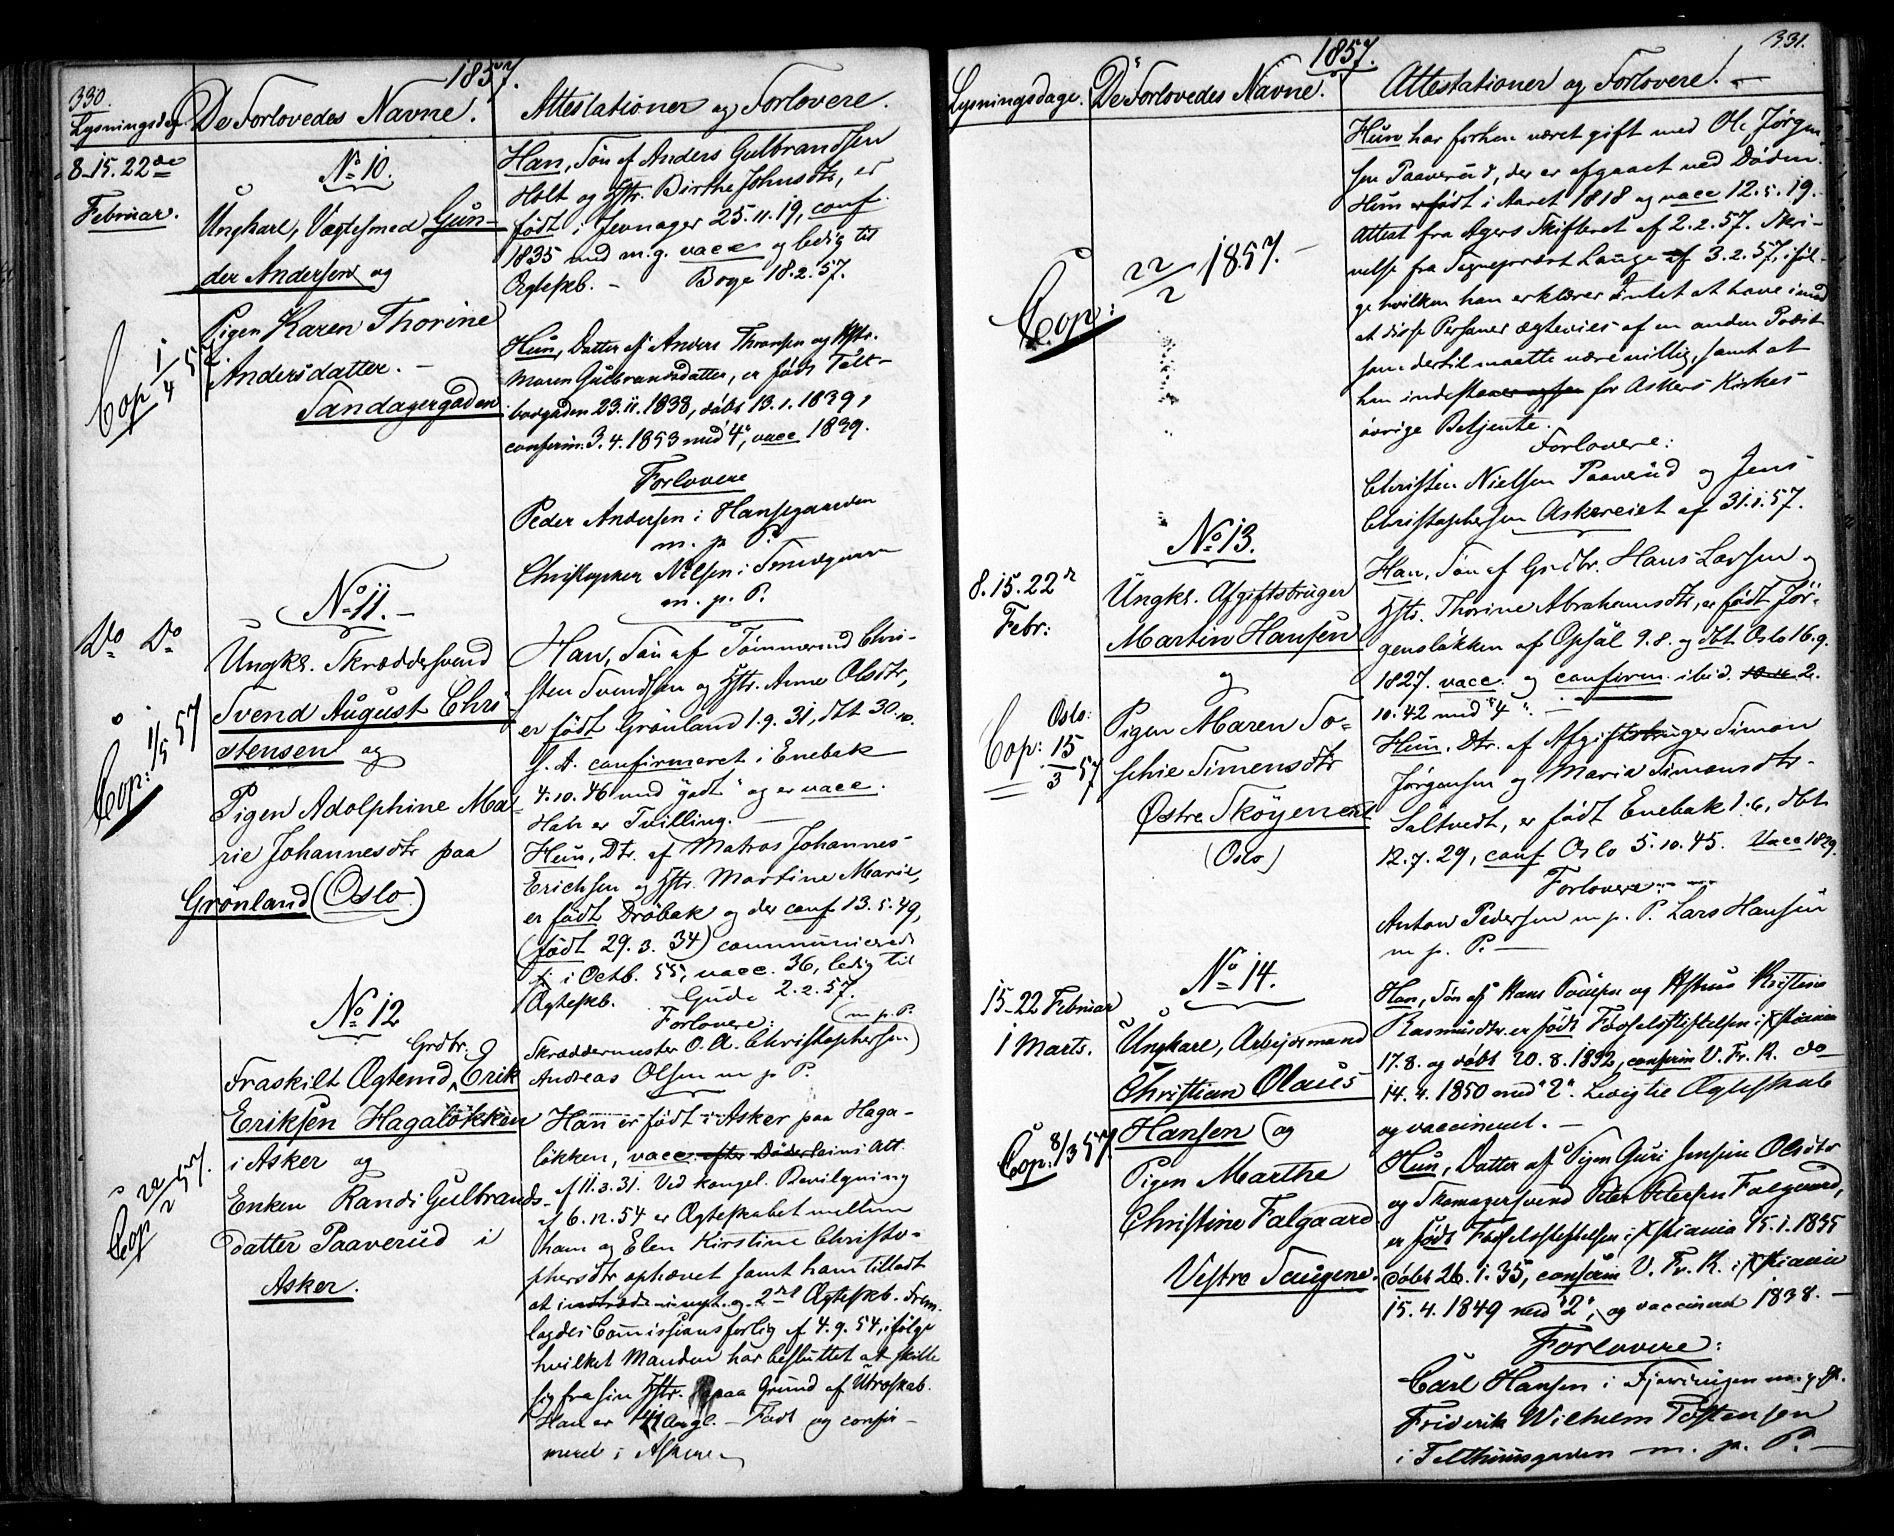 1857.
330.
Lysningsdag. De Forlovedes Navne. Attestationer og Forlovere.
8-15.22de
Februar.
No 10.
Ungkarl, Vægtesmed Gun-
der Andersen og
Pigen Karen Thorine
Andersdatter. -
Sandagergaden
Cop 1/4 57
Han, Søn af Anders Gulbrandsen
Holt og Hstr. Birthe Johnsdtr, er
født i Jevnager 25.11.19, conf.
1835 med m.g. vacc og ledig til
Ægteskb. - Boye 18.2.57.
Hun, Datter af Anders Thronsen og Hstr.
Maren Gulbrandsdatter, er født Telt-
borgaden 23.11.1838, døbt 13.1.1839,
confirm. 3.4.1853 med "4", vacc 1839.
Forlovere
Peder Andersen i Hansegaarden
m. p. P.
Christopher Nilsen i
m. p. P.
Do Do
No 11. -
Ungkl. Skræddersvend
Svend August Chri-
stensen og
Pigen Adolphine Ma-
rie Johannesdtr paa
Grønland (Oslo)
Cop: 1/5 57
Han, Søn af Tømmermd Chri-
sten Svendsen og Hstr. Anne Olsdtr,
er født Grønland 1.9.31, dbt 30.10.
S. A. confirmeret i Enebak
4.10.46 med "godt" og er vacc.
Han er Tvilling.
Hun, Dtr. af Matros Johannes
Erichsen og Hstr. Martine Marie,
er født Drøbak og der conf 13.5.49,
(født 29.3.34) communicered
i Octb. 55, vacc. 36, ledig til
Ægteskb. Gude 2.2.57.
Forlovere:
Skræddermester O. A. Christophersen (m. p. P.)
Andreas Olsen m p P.
No 12
Grdbr.
Fraskilt Ægtemd, Erik
Eriksen Hagaløkken
i Asker og
Enken Randi Gulbrands-
datter Paaverud i
Asker.
Cop 22/2 57.
Han er født i Asker paa Haga-
løkken, vacc. efter Døderleins Att.
af 11.3.31. Ved kongel. Bevilgning
af 6.12.54 er Ægteskabet mellem
ham og Elen Kirstine Christo-
phersdtr ophævet samt ham tilladt
at indtræde i nyt. og 2det Ægteskb. Frem-
lagdes Comissionsforlig af 4.9.54, ifølge
hvilket Manden har besluttet at skille
sig fra sin Hstr. paa Grund af Utroskab.
Han er 41 Aar gl. - Født og confir-
meret i Asker
1857.
331.
Lysningsdage. De Forlovedes Navne. Attestationer og Forlovere.
Cop: 22/2 1857. -
Hun har forhen været gift med Ole Jørgen-
sen Paaverud, der er afgaaet ved Døden.
Hun er født i Aaret 1818 og vacc 12.5.19.
Attest fra Agers Skifteret af 2.2.57. Skri-
velse fra Sognepræst Lange af 3.2.57, iføl-
ge hvilken han erklærer Intet at have imod
at disse Personer ægtevies af en anden Præst
som dertil maatte være villig, samt at
han indestaaer for Askers Kirkes
øvrige Betjente.
Forlovere:
Christen Nielsen Paaverud og Jens
Christophersen Askereiet af 31.1.57.
8.15.22r
Febr:
No 13.
Ungkl. Afgiftsbruger
Martin Hansen
og
Pigen Maren So-
phie Simensdtr
Østre Skøyeneiet
(Oslo)
Oslo:
Cop: 15/3 57
Han, Søn af Grdbr. Hans Larsen og
Hstr. Thorine Abrahamsdtr, er født Jør-
gensløkken af Opsal 9.8. og dbt. Oslo 16.9.
1827. vacc. og confirm. ibid. 2.
10.42 med "4".
Hun. Dtr. af Afgiftsbruger Simon
Jørgensen og Maria Simonsdtr.
Saltvedt, er født Enebak 1.6, dbt
12.7.29, conf Oslo 5.10.45. Vacc 1829.
Forlovere:
Anton Pedersen m p. P. Lars Hansen
m p. P. -
15-22 Februar
1 Marts.
No 14.
Ungkarl, Arbejdsmand
Christian Olaus
Hansen og
Pigen Marthe
Christine Falgaard
Vestre Saugene.
Cop: 8/3 57.
Han, Søn af Hans Poulsen og Hstrus Kristine
Rasmusdtr. er født Fødselsstiftelsen i Xstiania
17.8. og døbt 20.8.1832, confirm V. Fr. K. do
14.4.1850 med "2". Ledig til Ægteskab
og vaccineret. -
Hun, Datter af Pigen Guri Jensine Olsdtr
og Skomagersvend Peter Petersen Falgaard,
er født Fødselsstiftelsen i Xstiania 15.1.1835
døbt 26.1.35, confirm V. Fr. K. i Xstiania
15.4.1849 med "2", og vaccineret 1838. -
Forlovere:
Carl Hansen i Fjerdingen m. p. P.
Friderik Wilhelm Tostensen
i Telthuusgaden m. p. P. -